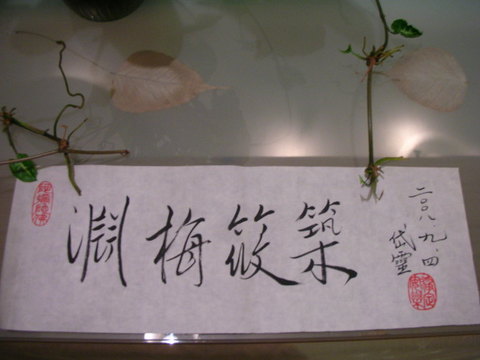 淵梅筱築
二〇〇八、九、四
岱靈